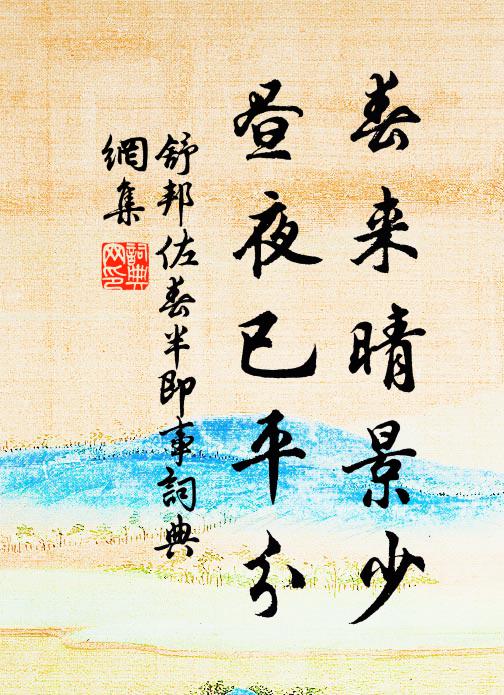 春来晴景少
昼夜已平分
舒邦佐春半即事詞典
網集
詞典
网印